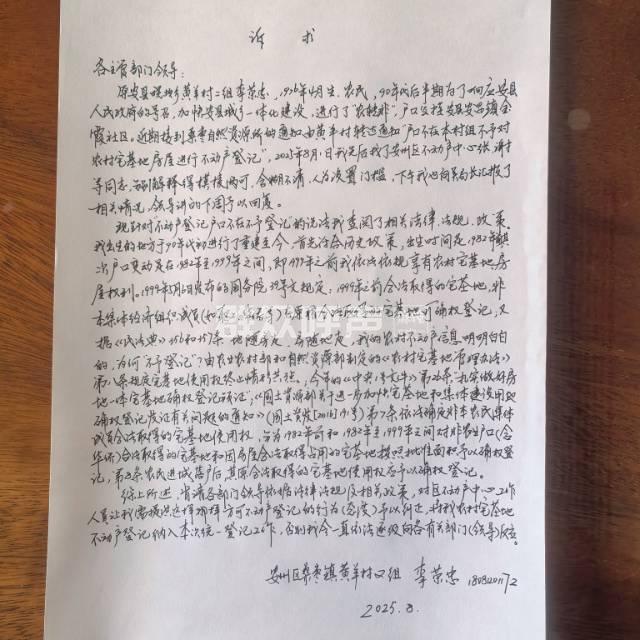 诉 求
各主管部门领导:
原安县桑枣乡黄羊村二组李荣忠,1976年4月生,农民,90年代后半期为了响应安县
人民政府的号召,加快安县城乡一体化建设,进行了"农转非",户口迁移安县安昌镇金
霞社区。近期接到桑枣自然资源所的通知由黄羊村转达通知"户口不在本村组不予对
农村宅基地房屋进行不动产登记"。2025年8月1日我先后找了安州区不动产中心张、谢村
等同志,召开解释得模棱两可,含糊不清,人为设置门槛,下午我也向吴局长汇报了
相关情况,领导讲的下周予以回复。
现针对不动产登记户口不在不予登记的说法我查阅了相关法律、法规、政策。
我出生的地方于90年代初进行了重建至今,首先符合历史政策,出生时间是1982年
户口变动是在1982年至1999年之间,即1999年之前我依法依规享有农村宅基地、房
屋权利。1999年5月发布的国务院39号文规定,1999年前合法取得的宅基地,非
本集体经济组织成员 可确权登记,又
根据《民法典》 地随房走,房随地走,我的农村不动产信息明明白白
的,为何"不予登记"?由农业农村部和自然资源部制定的《农村宅基地管理办法》
第八条规定宅基地使用权终止情形共 ,今年的《中央1号文件》第 条"扎实做好房
地一体宅基地确权登记颁证";《国土资源部关于进一步加快宅基地和集体建设用地
确权登记发证有关问题的通知》(国土资发[2016]191号)第7条依法确定非本农民集体
成员合法取得的宅基地使用权,
合法取得的宅基地和因房屋合法取得占用的宅基地按照批准面积予以确权登
记,第 条农民进城落户后其原合法取得的宅基地使用权应予以确权登记。
综上所述,肯请各部门领导依据法律法规及相关政策,对区不动产中心工作
人员让我 这样那样方可不动产登记的行为(态度)予以纠正,将我农村宅基地
不动产登记纳入本次统一登记工作,否则我会一直依法逐级向各有关部门(领导)反应。
安州区桑枣镇黄羊村二组 李荣忠
2025.8.
群众呼声